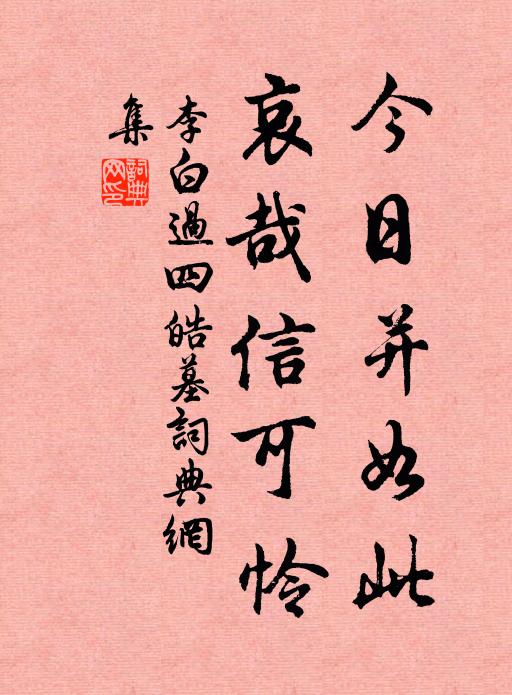 今日并如此
哀哉信可怜
李白過四皓墓詞典網
集
詞典網印